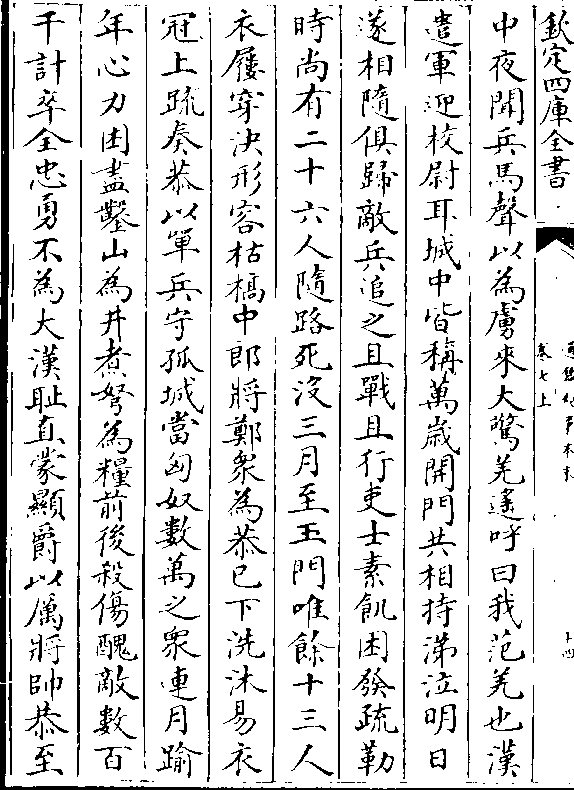 欽定四庫全書
通鑑紀事本末
卷七上
十四
中夜聞兵馬聲以為虜來大驚羌遙呼曰我范羌也漢
遣軍迎校尉耳城中皆稱萬歲開門共相持涕泣明日
遂相隨俱歸敵兵追之且戰且行吏士素飢困發疏勒
時尚有二十六人隨路死沒三月至玉門唯餘十三人
衣屨穿決形容枯槁中郎將鄭衆為恭已下洗沐易衣
冠上疏奏恭以單兵守孤城當匈奴數萬之衆連月踰
年心力困盡鑿山為井煮弩為糧前後殺傷醜敵數百
千計卒全忠勇不為大漢恥宜蒙顯爵以厲將帥恭至